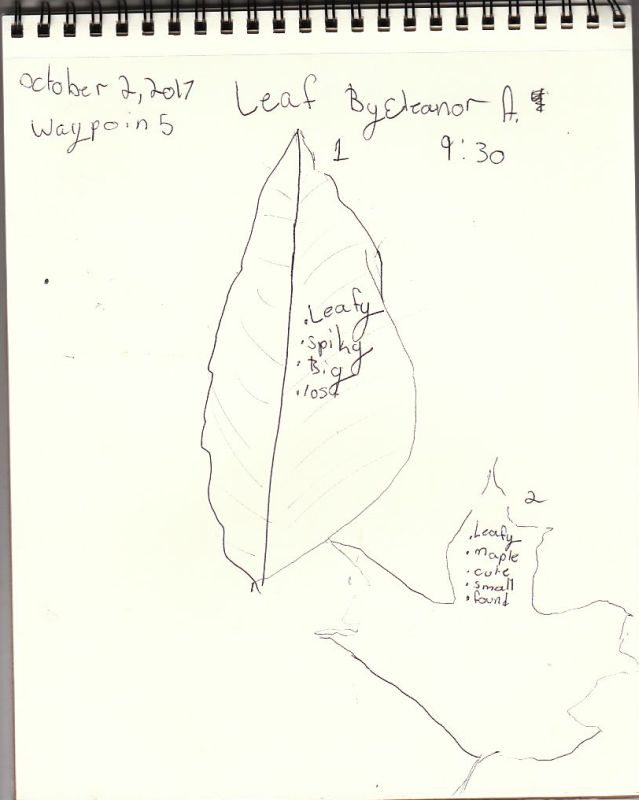 October 2, 2017
Waypoin 5
Leaf By Eleanor A.
9:30
1
.Leafy
.Spiky
.Big
.losd
2
.Leafy
.maple
.cute
.small
.found